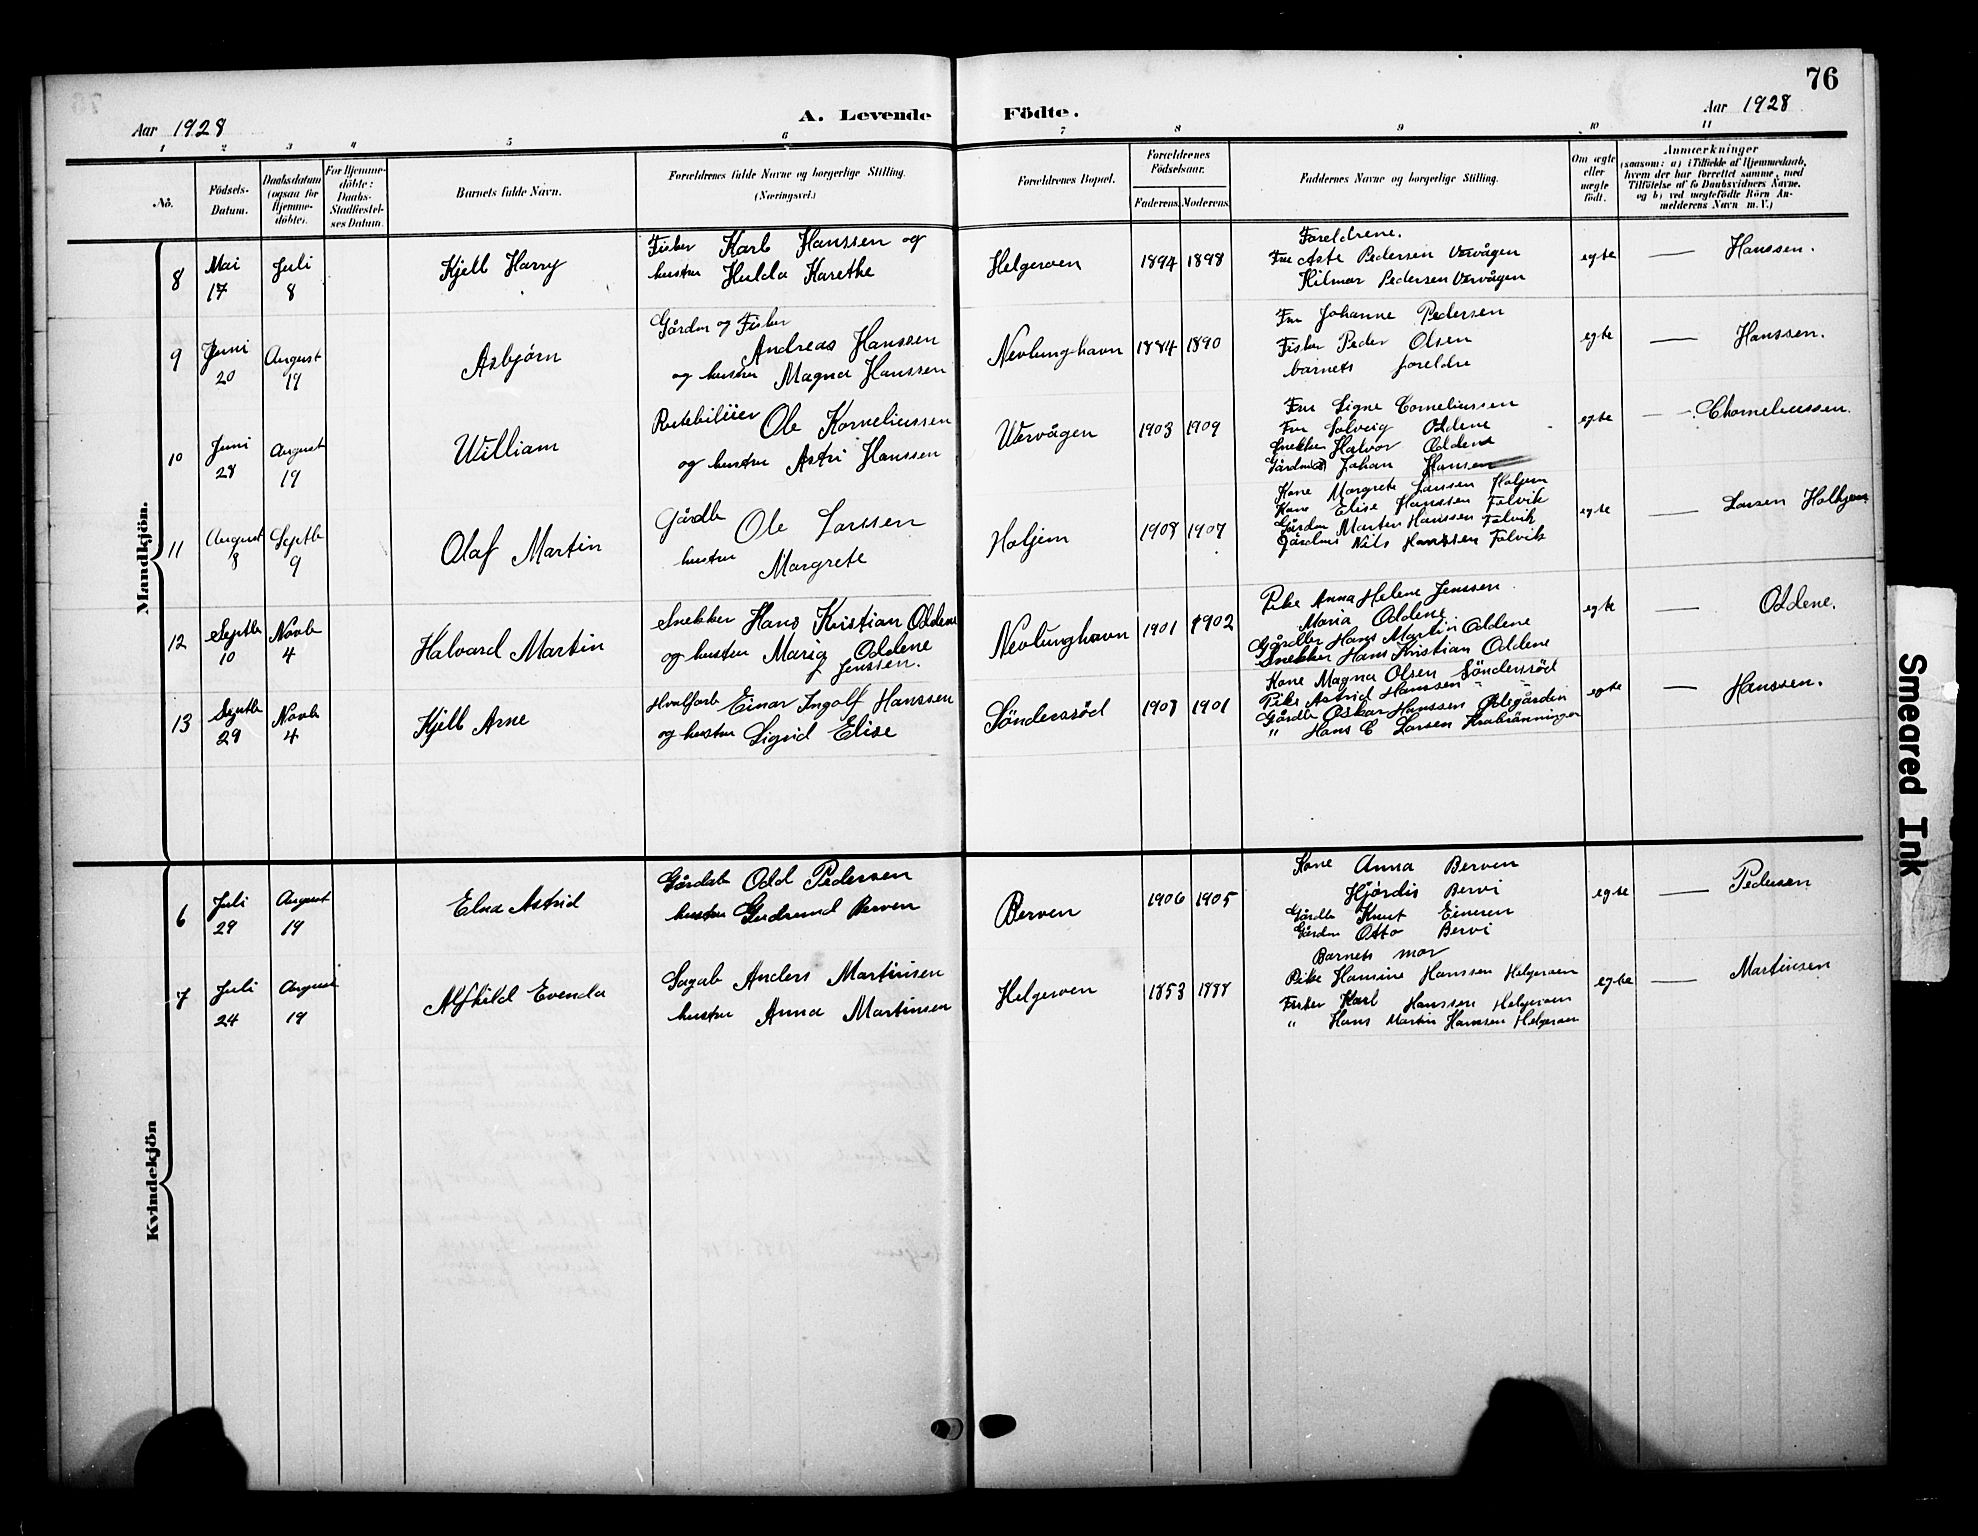 76
Aar 1928
A. Levende
Födte.
Aar 1928
1 2 3 4 5 6 7 8 9 10 11
No.
Födsels-
Datum.
Daabsdatum
(ogsaa for
Hjemme-
döbte).
For Hjemme-
döbte:
Daabs-
Stadfæstel-
ses Datum.
Barnets fulde Navn.
Forældrenes fulde Navne og borgerlige Stilling.
(Næringsvei.)
Forældrenes Bopæl.
Forældrenes
Födselsaar.
Faderens. Moderens.
Faddernes Navne og borgerlige Stilling.
Om ægte
eller
uægte
født.
Anmærkninger
(saasom: a) i Tilfælde af Hjemmedaab,
hvem der har forrettet samme, med
Tilföielse af to Daabsvidners Navne.
og b) ved uægtefödte Börn An-
melderens Navn m. V.)
Mandkjön.
8
Mai
17
Juli
8
Kjell Harry
Fisker Karl Hanssen og
hustru Hulda Karethe
Helgeroen
1894 1898
Foreldrene.
Fru Aste Pedersen Vervågen
Hilmar Pedersen Vervågen
egte
— Hanssen.
9
Juni
20
August
19
Asbjørn
Gårdbr og Fisker
Andreas Hanssen
og hustru Magna Hanssen
Nevlunghavn
1884 1890
Fru Johanne Pedersen
Fisker Peder Olsen
barnets foreldre
egte
— Hanssen.
10
Juni
28
August
19
William
Rutebileier Ole Korneliussen
og hustru Astri Hanssen
Vervågen
1903 1909
Fru Signe Corneliussen
Fru Solveig Oddene
Snekker Halvor Oddene
Johan Hansen
egte
— Chorneliussen.
11
August
8
Septbr
9
Olaf Martin
Gårdbr Ole Larssen
hustru Margrete
Holjem
1908 1907
Kone Margrete Larssen Holjem
Kone Elise Hanssen Falvik
Gårdbr Marten Hanssen Falvik
Nils Hanssen Falvik
egte
— Larsen Holkjem
12
Septbr
10
Novbr
4
Halvard Martin
Snekker Hans Kristian Oddene
og hustru Maria Oddene
f Jenssen.
Nevlunghavn
1901 1902
Pike Anna Helene Jenssen
Maria Oddene
Gårdbr Hans Martin Oddene
Snekker Hans Kristian Oddene
egte
— Oddene.
13
Septbr
29
Novbr
4
Kjell Arne
Hvalfanb Einar Ingolf Hanssen
og hustru Sigrid Elise
Sönderssöd
1901
Kone Magna Olsen Sönderssöd
Pike Astrid Hanssen " -
Gårdbr Oskar Hanssen Ødegården
" Hans C Larsen
egte
— Hanssen.
Kvindekjön
6
Juli
29
August
19
Elna Astrid
Gårdbr Odd Pedersen
hustru Gudrund Berven
Berven
1906 1905
Kone Anna Berven
Hjördis Bervi
Gårdbr Knut
Gårdbr Otto Bervi
egte
— Pedersen
7
Juli
24
August
19
Alfhild Evenda
Sagab Anders Martinsen
hustru Anna Martinsen
Helgeroen
1853 1888
Barnets mor
Pike Hansine Hanssen Helgeroen
Fisker Karl Hanssen Helgeroen
" Hans Martin Hanssen Helgeroen
egte
— Martinsen
Smeared Ink